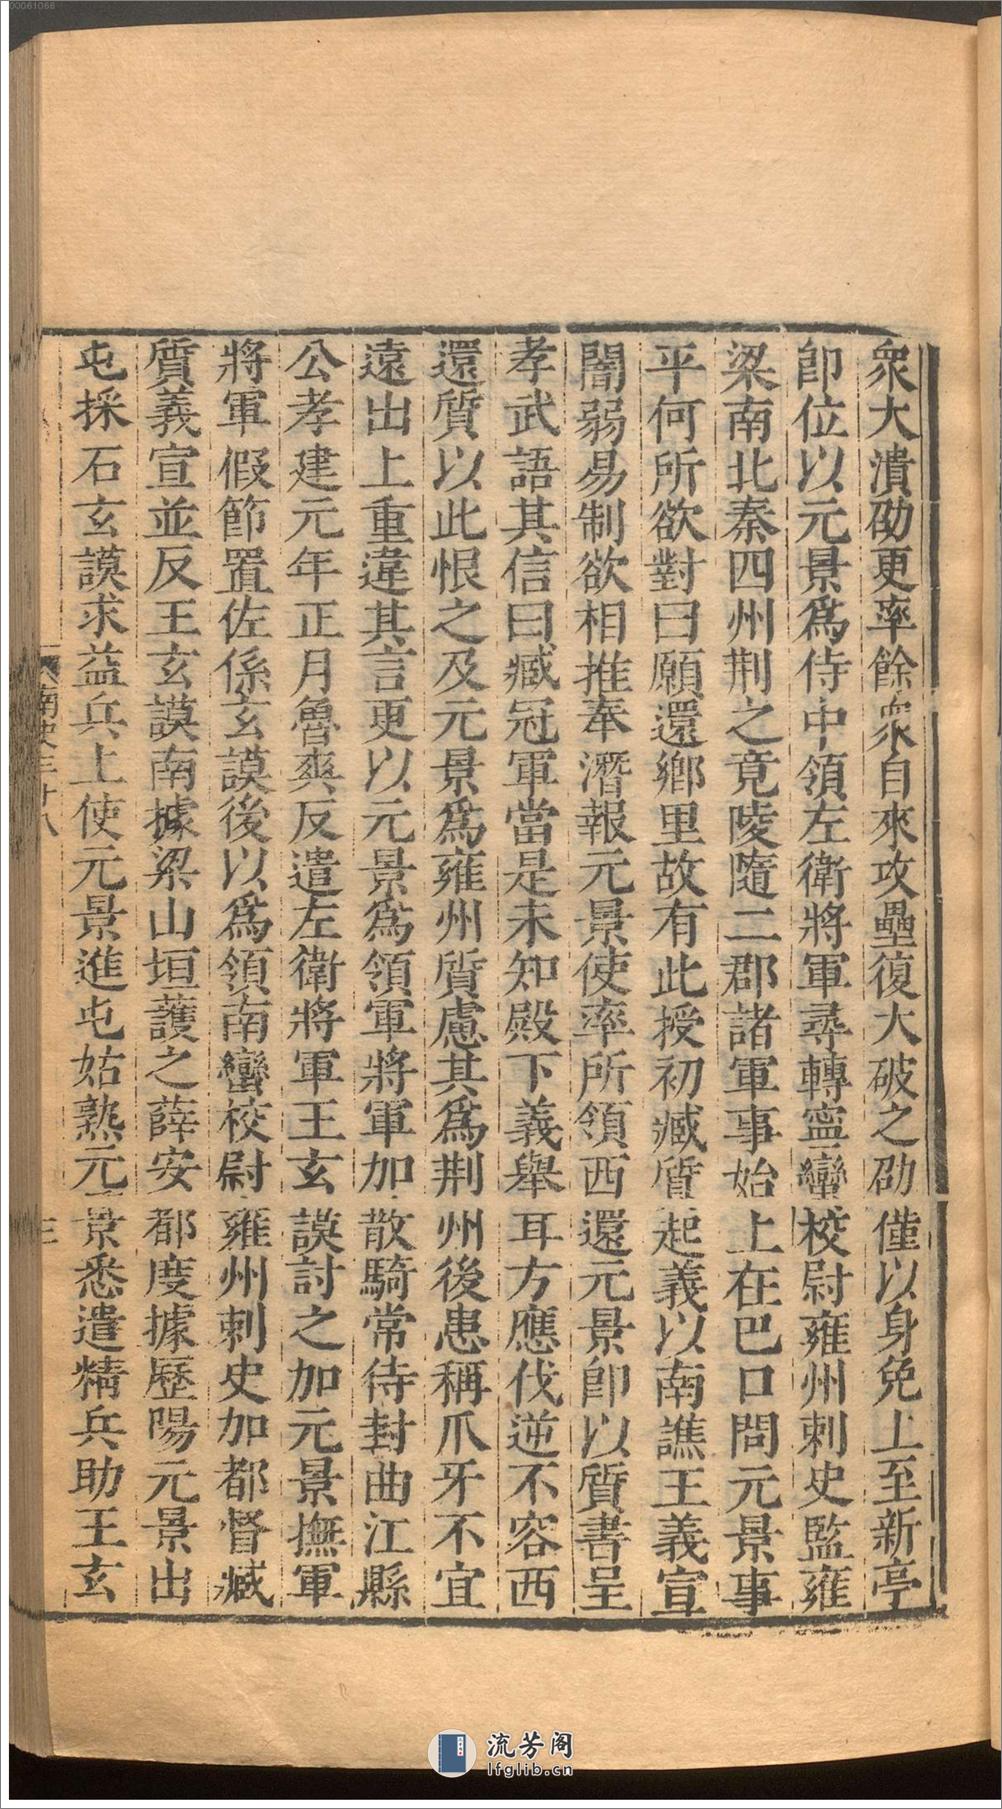 00061066
衆大潰劭更率餘衆自來攻壘復大破之劭僅以身免上至新亭
卽位以元景爲侍中領左衛將軍尋轉寧蠻校尉雍州刺史監雍
梁南北秦四州荆之竟陵隨二郡諸軍事始上在巴口問元景事
平何所欲對曰願還鄉里故有此授初臧質起義以南譙王義宣
闇弱易制欲相推奉潛報元景使率所領西還元景卽以質書呈
孝武語其信曰臧冠軍當是未知殿下義舉耳方應伐逆不容西
還質以此恨之及元景爲雍州質慮其爲荆州後患稱爪牙不宜
遠出上重違其言更以元景爲領軍將軍加散騎常侍封曲江縣
公孝建元年正月魯爽反遣左衛將軍王玄謨討之加元景撫軍
將軍假節置佐係玄謨後以爲領南蠻校尉雍州刺史加都督臧
質義宣並反王玄謨南據梁山垣護之薛安都度據歷陽元景出
屯採石玄謨求益兵上使元景進屯姑熟元景悉遣精兵助王玄
南史三十八
三
流芳阁
lfglib.cn